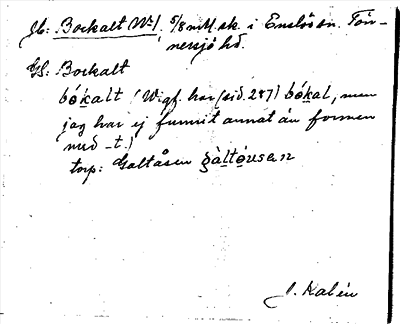 Jb: Bockalt (W=). 5/8 mtl. sk. i Enslöv sn. Tön-
nersjö hd.
Gs: Bockalt
bókalt (Wigf. har (sid. 287) bókal, men
jag har ej funnit annat än formen
med -t.)
torp: Galtåsen gàltóusen
J. Kalén